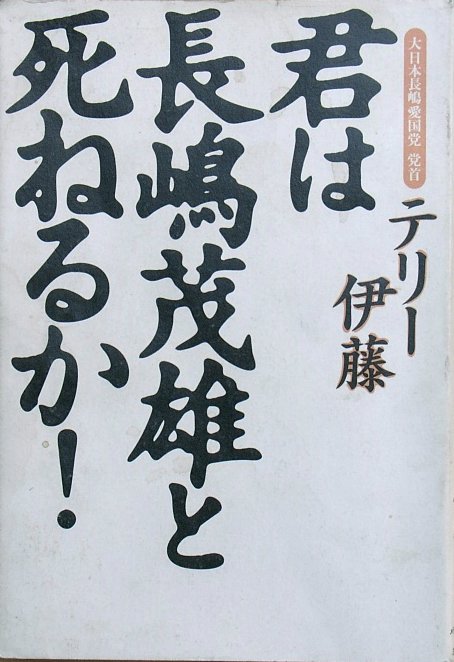 大日本長嶋愛国党 党首
テリー
伊藤
君は
長嶋茂雄と
死ねるか!